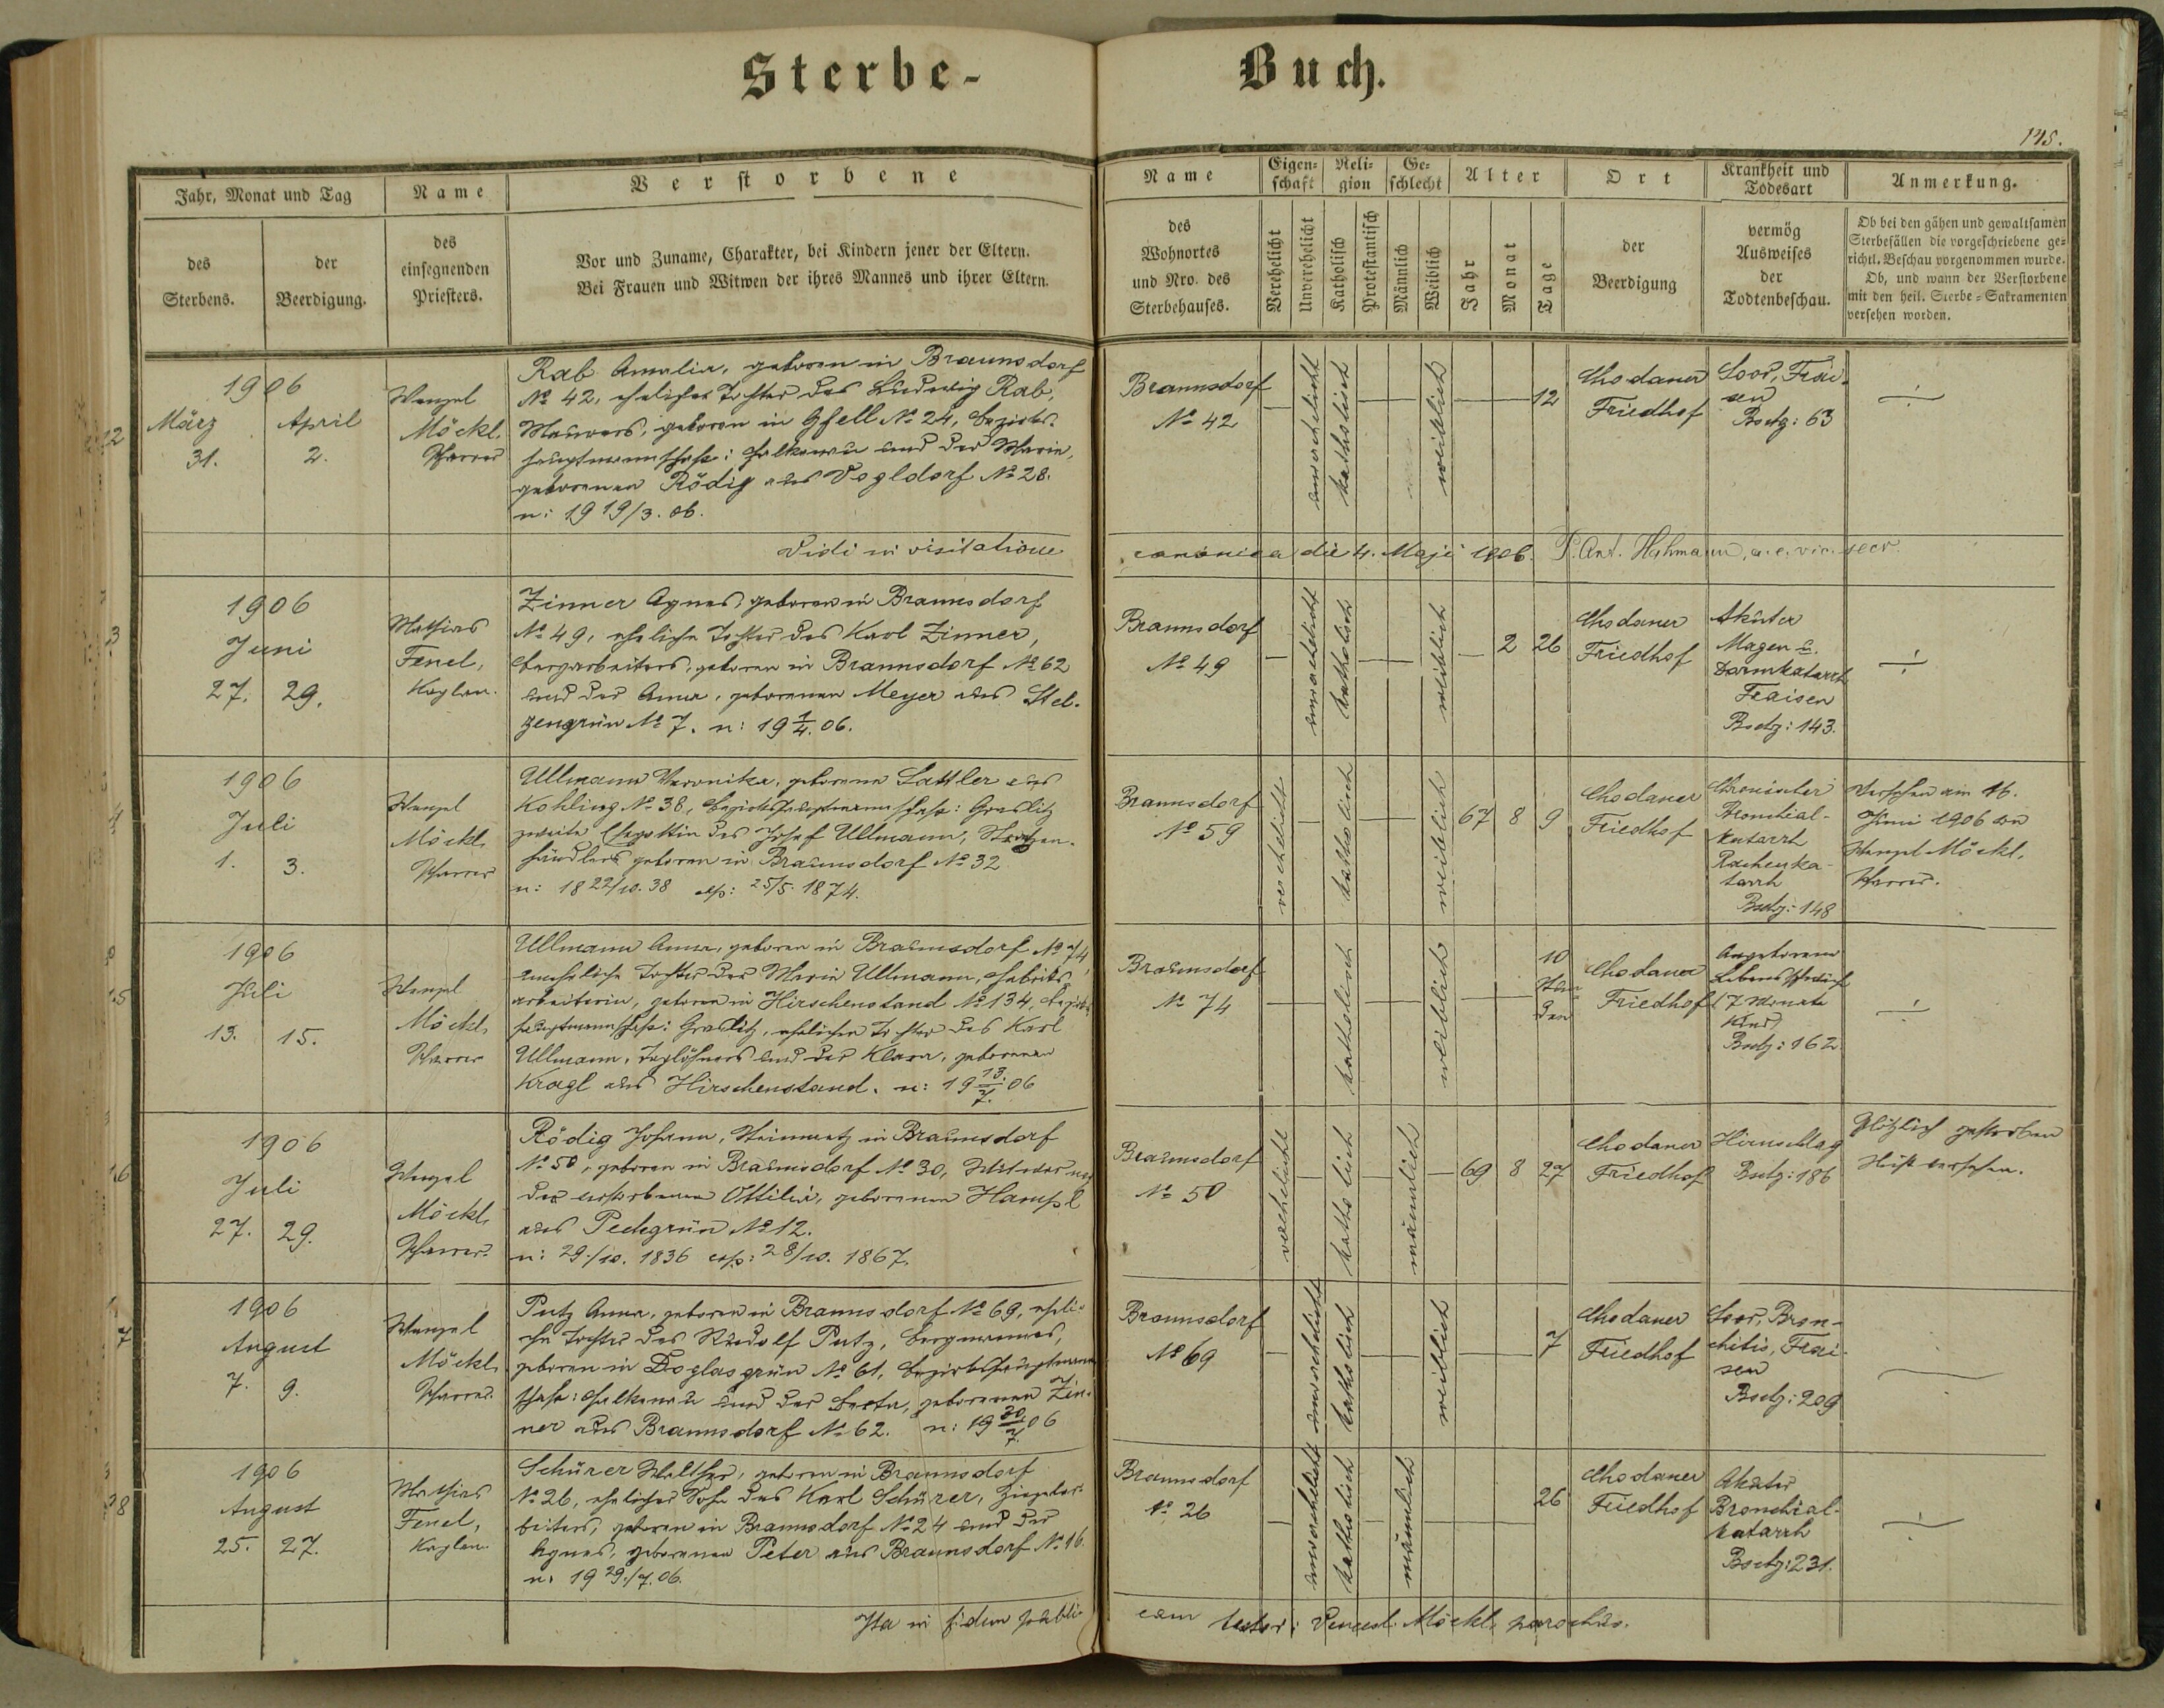 Sterbe-
Buch.
145.
Jahr, Monat und Tag
des
Sterbens.
der
Beerdigung.
Name
des
einsegnenden
Priesters.
Verstorbene
Vor und Zuname, Charakter, bei Kindern jener der Eltern.
Bei Frauen und Witwen der ihres Mannes und ihrer Eltern.
Name
des
Wohnortes
und Nro. des
Sterbehauses.
Eigen-
schaft
Verehelicht
Unverehelicht
Reli-
gion
Katholisch
Protestantisch
Ge-
schlecht
Männlich
Weiblich
Alter
Jahr
Monat
Tage
Ort
der
Beerdigung
Krankheit und
Todesart
vermög
Ausweises
der
Todtenbeschau.
Anmerkung.
Ob bei den gähen und gewaltsamen
Sterbefällen die vorgeschriebene ge-
richtl. Beschau vorgenommen wurde.
Ob, und wann der Verstorbene
mit den heil. Sterbe-Sakramenten
versehen worden.
1906
März April
31. 2.
Wenzel
Möckl,
Pfarrer
Rab Amalia, geboren in Braunsdorf
№ 42, eheliche Tochter des Ludwig Rab,
Maurers, geboren in Gfell № 24, Bezirks-
hauptmannschaft: Falkenau und der Marie,
geborenen Rödig aus Vogldorf № 28.
n: 19 19/3. 06.
Braunsdorf
№ 42
unverehelicht
katholisch
weiblich
12
Chodauer
Friedhof
Soor, Frai-
sen
Bsctg: 63
Vidi in visitatione
canonica die 4. Maji 1906. P. Ant. Hahmann, a. e. vic. secr.
1906
Juni
27. 29.
Mathias
Fenel,
Kaplan.
Zinner Agnes, geboren in Braunsdorf
№ 49, eheliche Tochter des Karl Zinner,
Bergarbeiters, geboren in Braunsdorf № 62
und der Anna, geborenen Meyer aus Stel-
zengrün № 7. n: 19 1/4. 06.
Braunsdorf
№ 49
unverehelicht
katholisch
weiblich
2 26
Chodauer
Friedhof
Akuter
Magen u.
Darmkatarrh
Fraisen
Bsctg: 143.
1906
Juli
1. 3.
Wenzel
Möckl,
Pfarrer
Ullmann Veronika, geborene Sattler aus
Kohling № 38, Bezirkshauptmannschaft: Graslitz
zweite Ehegattin des Josef Ullmann,
händlers geboren in Braunsdorf № 32
n: 18 22/10. 38 cop: 25/5. 1874.
Braunsdorf
№ 59
verehelicht
katholisch
weiblich
67 8 9
Chodauer
Friedhof
Chronischer
Bronchial-
katarrh
Rachenka-
tarrh
Bsctg: 148
Versehen am 16.
Juni 1906 von
Wenzel Möckl,
Pfarrer.
1906
Juli
13. 15.
Wenzel
Möckl,
Pfarrer
Ullmann Anna, geboren in Braunsdorf № 74,
uneheliche Tochter der Marie Ullmann, Fabriks-
arbeiterin, geboren in Hirschenstand № 134, Bezirks-
hauptmannschaft: Graslitz, ehelichen Tochter des Karl
Ullmann, Taglöhners und der Klara, geborenen
Kragl aus Hirschenstand. n: 19 13./7. 06
Braunsdorf
№ 74
katholisch
weiblich
10
Stun-
den
Chodauer
Friedhof
Angeborene
Lebensschwäche
(7 Monate
Kind)
Bsctg: 162
1906
Juli
27. 29.
Wenzel
Möckl,
Pfarrer.
Rödig Johann, Steinmetz in Braunsdorf
№ 50, geboren in Braunsdorf № 30, Witwer nach
der verstorbenen Ottilie, geborenen Hampl
aus Pechgrün № 12.
n: 29./10. 1836 cop: 28/10. 1867.
Braunsdorf
№ 50
verehelicht
katholisch
männlich
69 8 27
Chodauer
Friedhof
Hirnschlag
Bsctg: 186
Plötzlich gestorben
Nicht versehen.
1906
August
7. 9.
Wenzel
Möckl,
Pfarrer.
Putz Anna, geboren in Braunsdorf № 69, eheli-
che Tochter des Rudolf Putz, Bergmannes,
geboren in Doglasgrün № 61, Bezirkshauptmann-
schaft: Falkenau und der Berta, geborenen Zin-
ner aus Braunsdorf № 62. n: 19 30/7. 06
Braunsdorf
№ 69
unverehelicht
katholisch
weiblich
7
Chodauer
Friedhof
Soor, Bron-
chitis, Frai-
sen
Bsctg: 209
1906
August
25. 27.
Mathias
Fenel,
Kaplan.
Schürer Walther, geboren in Braunsdorf
№ 26, ehelicher Sohn des Karl Schürer, Ziegelar-
beiters, geboren in Braunsdorf № 24 und der
Agnes, geborenen Peter aus Braunsdorf № 16.
n. 19 29./7. 06.
Braunsdorf
№ 26
unverehelicht
katholisch
männlich
26
Chodauer
Friedhof
Akuter
Bronchial-
katarrh
Bsctg: 231.
Ita in fidem publi-
cam testor: Vencesl. Möckl, parochus.